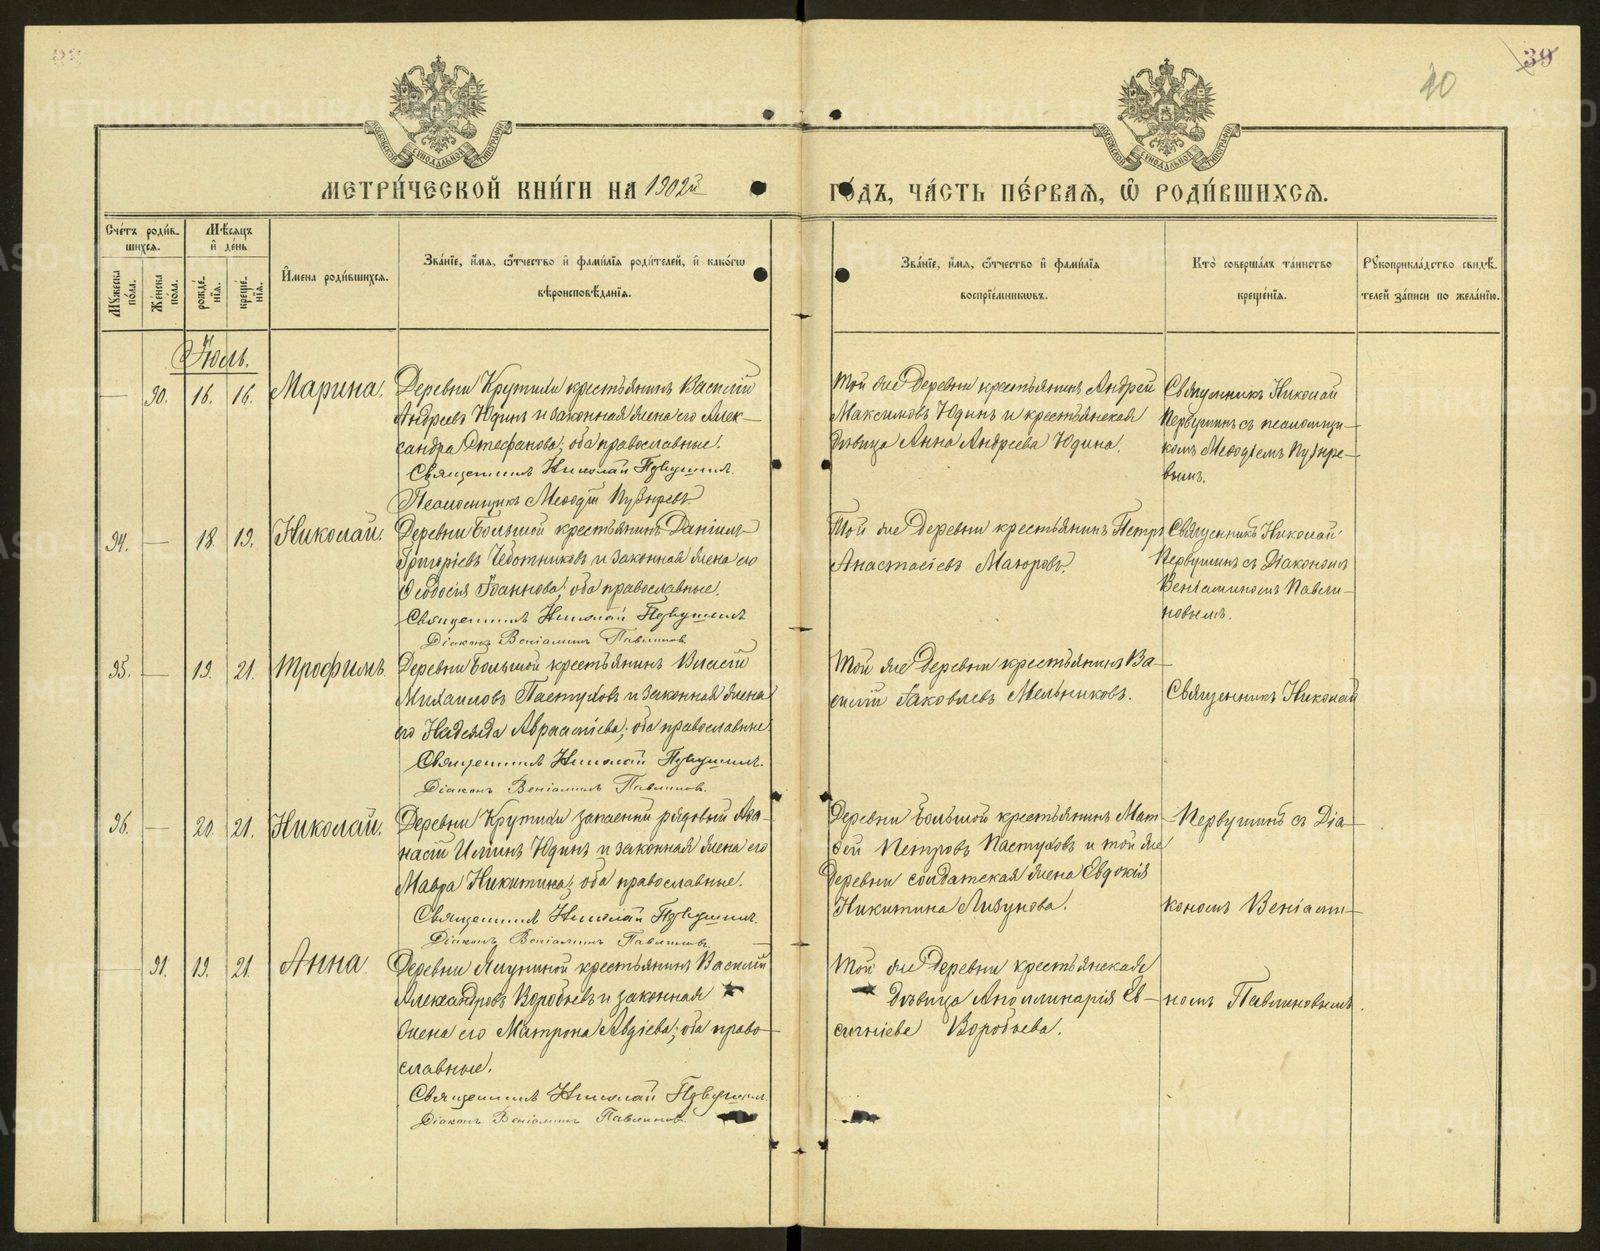 39
40
МЕТРИ́ЧЕСКОЙ КНИ́ГИ НА 1902й ГО́ДЪ, ЧА́СТЬ ПЕ́РВАѦ, Ѽ РОДИ́ВШИХСѦ.
Сче́тъ роди́вшихсѧ.
Мужеска по́ла.
Же́нска по́ла.
Мѣ́сѧцъ и҆ де́нь
рожде́нїѧ.
креще́нїѧ.
И҆мена роди́вшихсѧ.
Зва́нїе, и҆́мѧ, ѻ҆́тчество и҆ фами́лїѧ роди́телей, и҆ како́гѡ
вѣроисповѣ́данїѧ.
Зва́нїе, и҆́мѧ, ѻ҆́тчество и҆ фами́лїѧ
воспрїе́мникѡвъ.
Кто̀ соверша́лъ та́инство
креще́нїѧ.
Рꙋкоприкла́дство свидѣ́телей за́писи по жела́нїю.
Іюль.
— 90. 16. 16. Марина.
Деревни Крутихи крестьянинъ Василій
Андреевъ Юдинъ и законная жена его Алек-
сандра Стефанова; оба православные.
Священникъ Николай Первушинъ.
Псаломщикъ Меѳодій Пузыревъ
Той же деревни крестьянинъ Андрей
Максимовъ Юдинъ и крестьянская
дѣвица Анна Андреева Юдина.
Священникъ Николай
Первушинъ съ псаломщи-
комъ Меѳодіемъ Пузыре-
вымъ.
94. — 18. 19. Николай.
Деревни Большой крестьянинъ Даніилъ
Григорьевъ Чеботниковъ и законная жена его
Ѳеодосія Іоаннова; оба православные.
Священникъ Николай Первушинъ
Діаконъ Веніаминъ Павлиновъ
Той же деревни крестьянинъ Петръ
Анастасіевъ Маюровъ.
Священникъ Николай
Первушинъ съ Діакономъ
Веніаминомъ Павли-
новымъ.
95. — 19. 21. Трофимъ.
Деревни Большой крестьянинъ Власій
Михаиловъ Пастуховъ и законная жена
его Надежда; оба православные.
Священникъ Николай Первушинъ.
Діаконъ Веніаминъ Павлиновъ.
Той же деревни крестьянинъ Ва-
силій Іаковлевъ Мельниковъ.
Священникъ Николай
96. — 20. 21. Николай.
Деревни Крутихи запасный рядовой Аѳа-
насій Илиинъ Юдинъ и законная жена его
Мавра Никитина; оба православные.
Священникъ Николай Первушинъ.
Діаконъ Веніаминъ Павлиновъ.
Деревни Большой крестьянинъ Мат-
ѳей Петровъ Пастуховъ и той же
деревни солдатская жена Евдокія
Никитина Лизунова.
Первушинъ съ Діа-
кономъ Веніами-
— 91. 19. 21. Анна.
Деревни крестьянинъ Василій
Александровъ Воробьевъ и законная
жена его Матрона Авдіева; оба право-
славные.
Священникъ Николай Первушинъ.
Діаконъ Веніаминъ Павлиновъ.
Той же деревни крестьянская
дѣвица Аполлинарія Ев-
сигніева Воробьева.
номъ Павлиновымъ.
METRIKI.GASO-URAL.RU